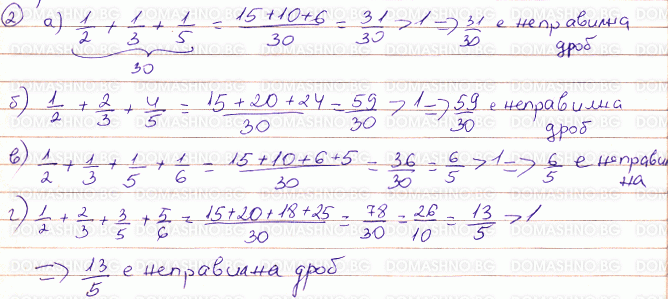 ② а) 1/2 + 1/3 + 1/5 = (15+10+6)/30 = 31/30 > 1 => 31/30 е неправилна
30 дроб
б) 1/2 + 2/3 + 4/5 = (15+20+24)/30 = 59/30 > 1 => 59/30 е неправилна
дроб
в) 1/2 + 1/3 + 1/5 + 1/6 = (15+10+6+5)/30 = 36/30 = 6/5 > 1 => 6/5 е неправил
на
г) 1/2 + 2/3 + 3/5 + 5/6 = (15+20+18+25)/30 = 78/30 = 26/10 = 13/5 > 1
=> 13/5 е неправилна дроб
DOMASHNO.BG